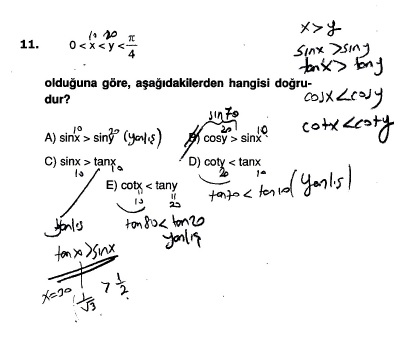 11. 0 < x < y < π/4
10 20
olduğuna göre, aşağıdakilerden hangisi doğru-
dur?
A) sinx > siny (yanlış)
10 20
B) cosy > sinx
sin70
20 10
C) sinx > tanx
10 10
D) coty < tanx
20 10
tan70 < tan10 (yanlış)
E) cotx < tany
10 20
tan80 < tan20
yanlış
yanlış
tanx > sinx
x=30 1/√3 > 1/2
x > y
sinx > siny
tanx > tany
cosx < cosy
cotx < coty